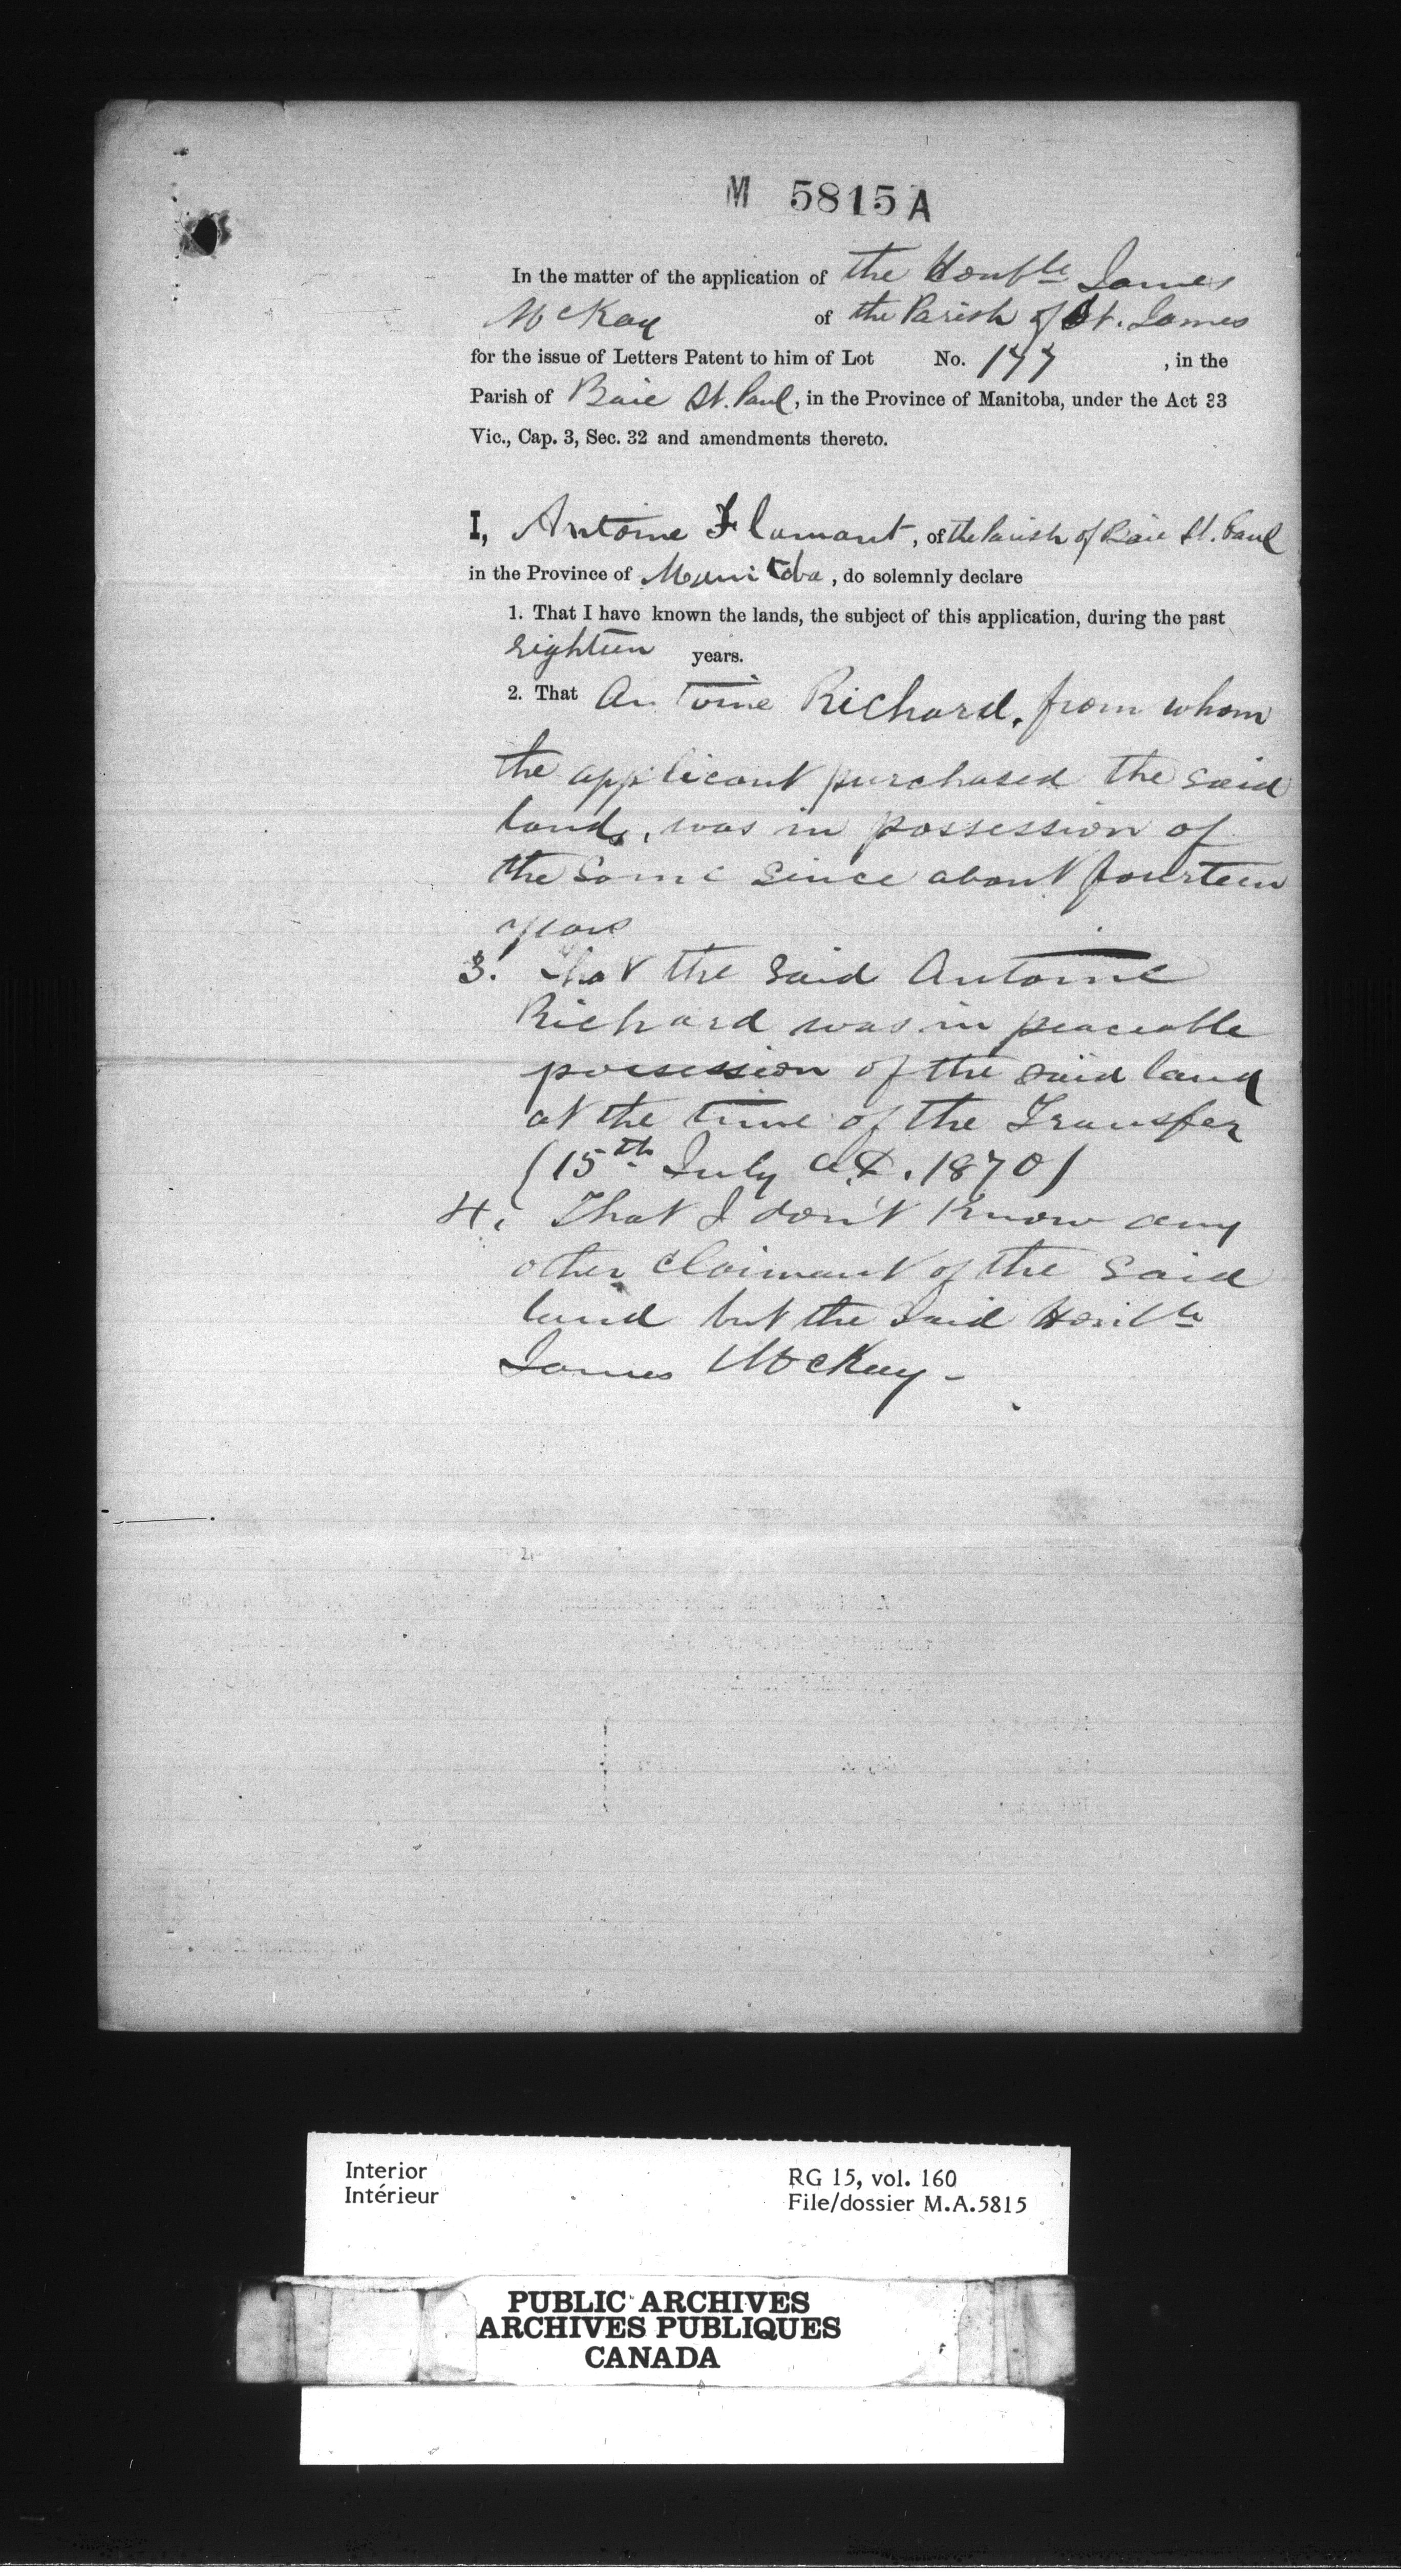 M 5815 A
In the matter of the application of the Honble James
McKay of the Parish of St. James
for the issue of Letters Patent to him of Lot No. 177, in the
Parish of Baie St. Paul, in the Province of Manitoba, under the Act 33
Vic., Cap. 3, Sec. 32 and amendments thereto.
I, Antoine Flamant, of the Parish of Baie St. Paul
in the Province of Manitoba, do solemnly declare
1. That I have known the lands, the subject of this application, during the past
eighteen years.
2. That Antoine Richard, from whom
the applicant purchased the said
land, was in possession of
the same since about fourteen
years
3. That the said Antoine
Richard was in peaceable
possession of the said land
at the time of the Transfer
(15th July A.D. 1870)
4. That I don't know any
other claimant of the said
land but the said Honble
James McKay -
Interior
Intérieur
RG 15, vol. 160
File/dossier M.A.5815
PUBLIC ARCHIVES
ARCHIVES PUBLIQUES
CANADA